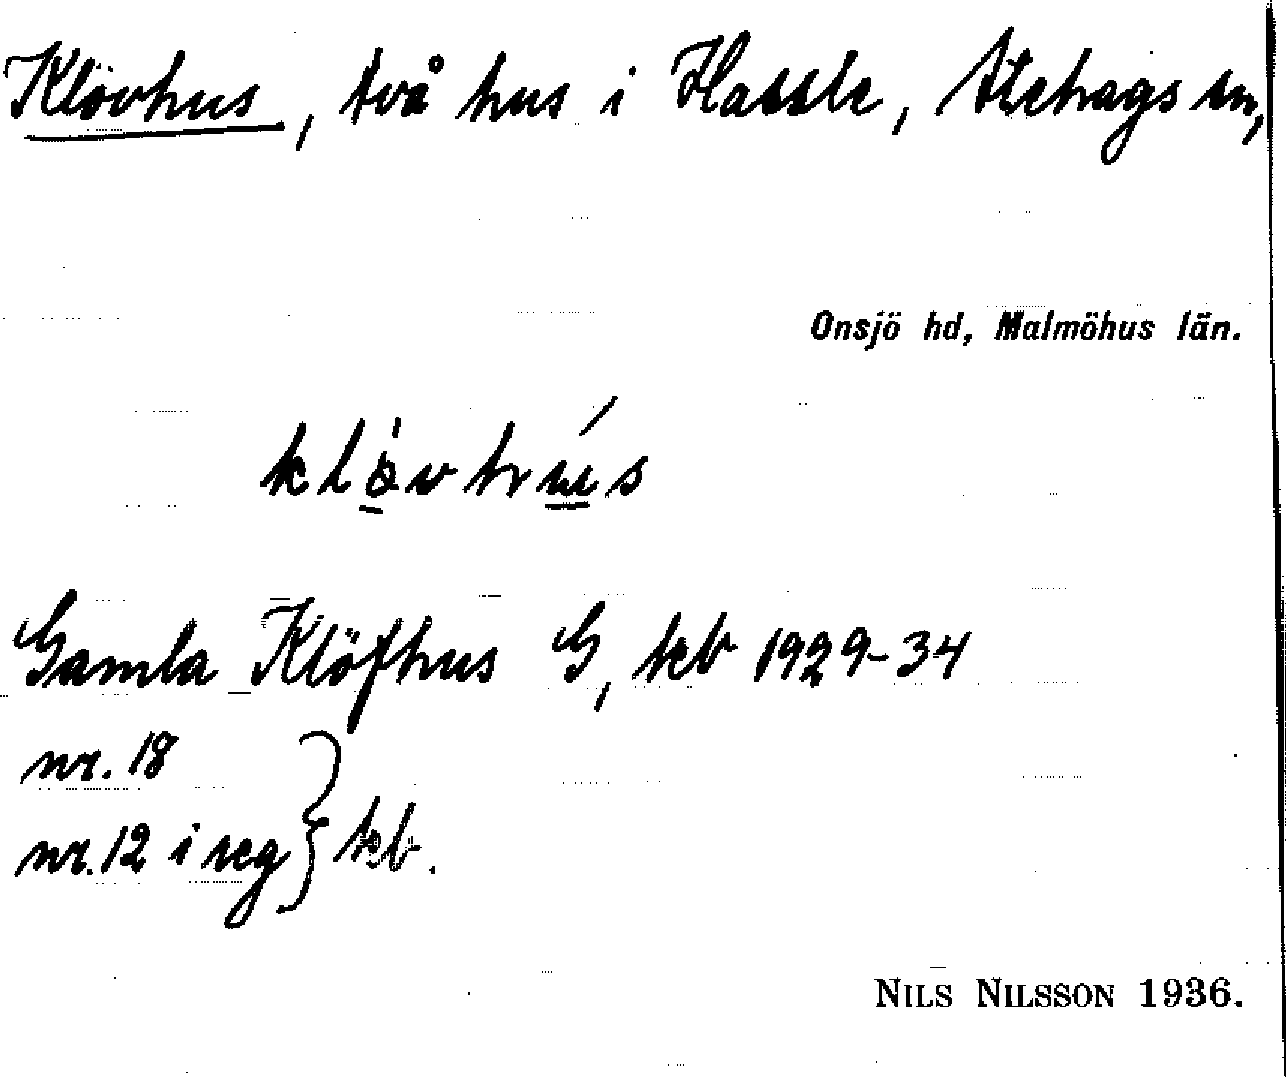 Klövhus, två hus i Hassle, Stehags sn,
Onsjö hd, Malmöhus län.
Gamla Klöfhus G, kb 1929-34
nr. 18
nr. 12 i reg } kb.
NILS NILSSON 1936.